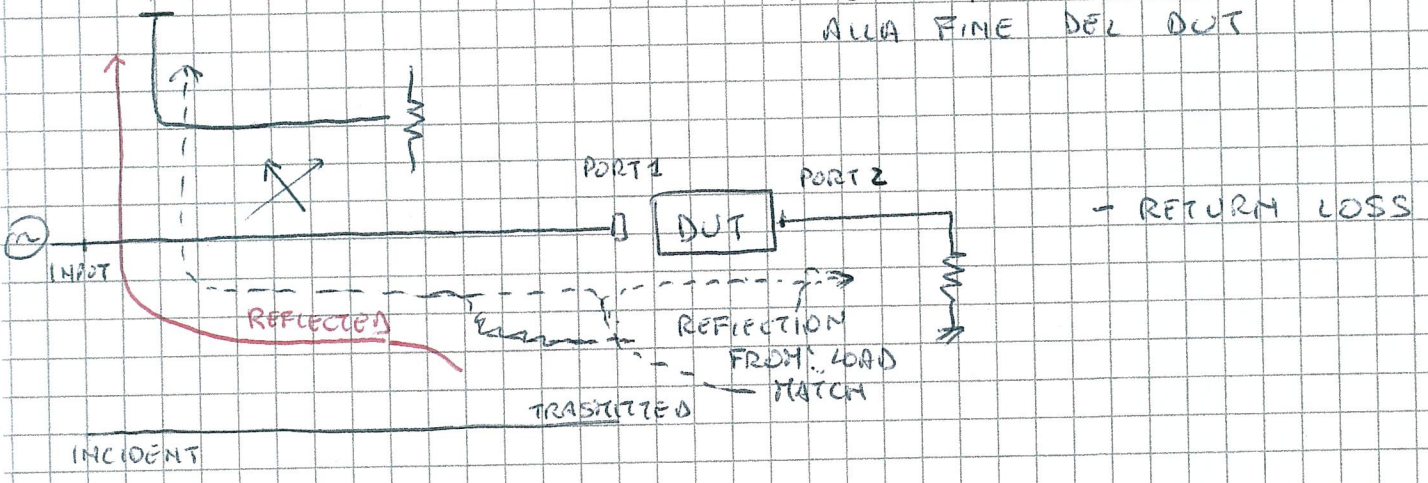 ALLA FINE DEL DUT
PORT 1
PORT 2
DUT
- RETURN LOSS
INPUT
REFLECTED
REFLECTION
FROM LOAD
MATCH
TRASMITTED
INCIDENT